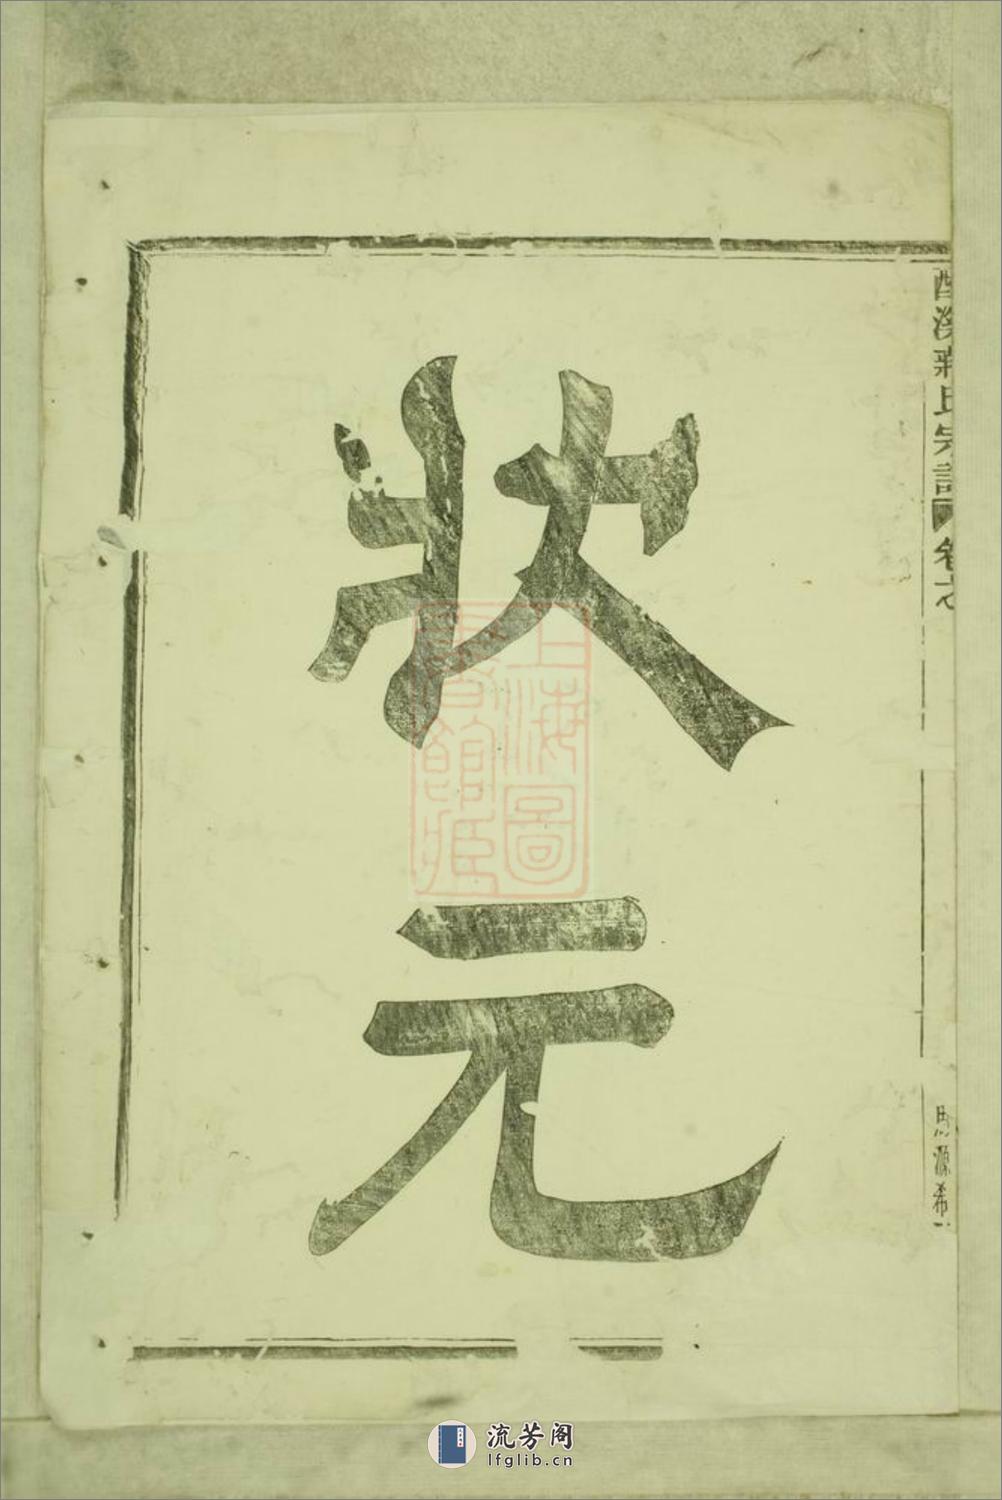 溪蔣氏宗譜 卷之
源希一
狀
元
上海圖
書館藏
流芳阁
lfglib.cn